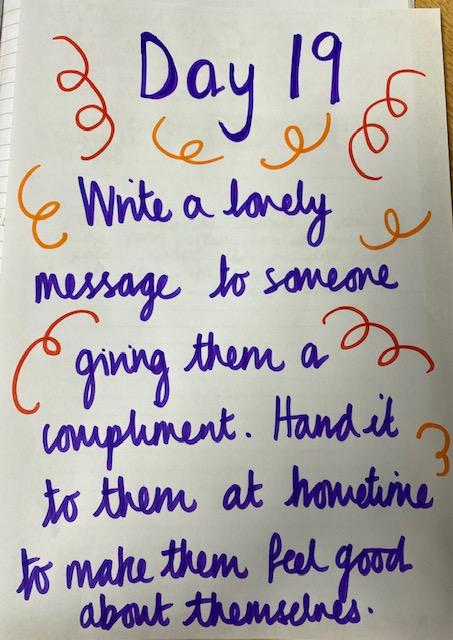 Day 19
Write a lovely
message to someone
giving them a
compliment. Hand it
to them at hometime
to make them feel good
about themselves.